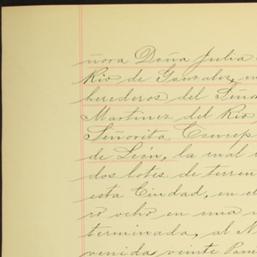 ñora Doña Julia
Rio de Gonzalez,
herederos del Seño
Martinez del Rio
Señorita
de León, la cual
dos lotes de terren
esta Ciudad, en el
ro ocho en una
terminada, al N
venida veinte